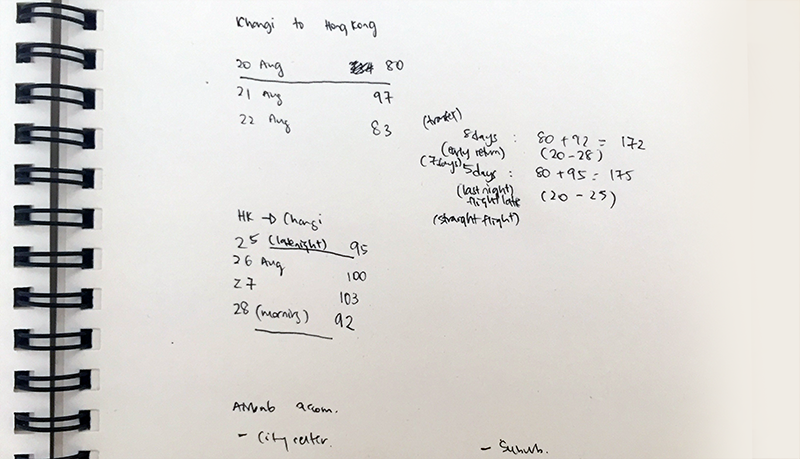 Changi to Hong Kong
20 Aug 80
21 Aug 97
22 Aug 83
(transfer)
8days : 80 + 92 = 172
(early return) (20 - 28)
(7days) 5days : 80 + 95 = 175
(last night) (20 - 25)
flight late
(straight flight)
HK → Changi
25 (latenight) 95
26 Aug 100
27 103
28 (morning) 92
accom.
- City center.
- Suburb.